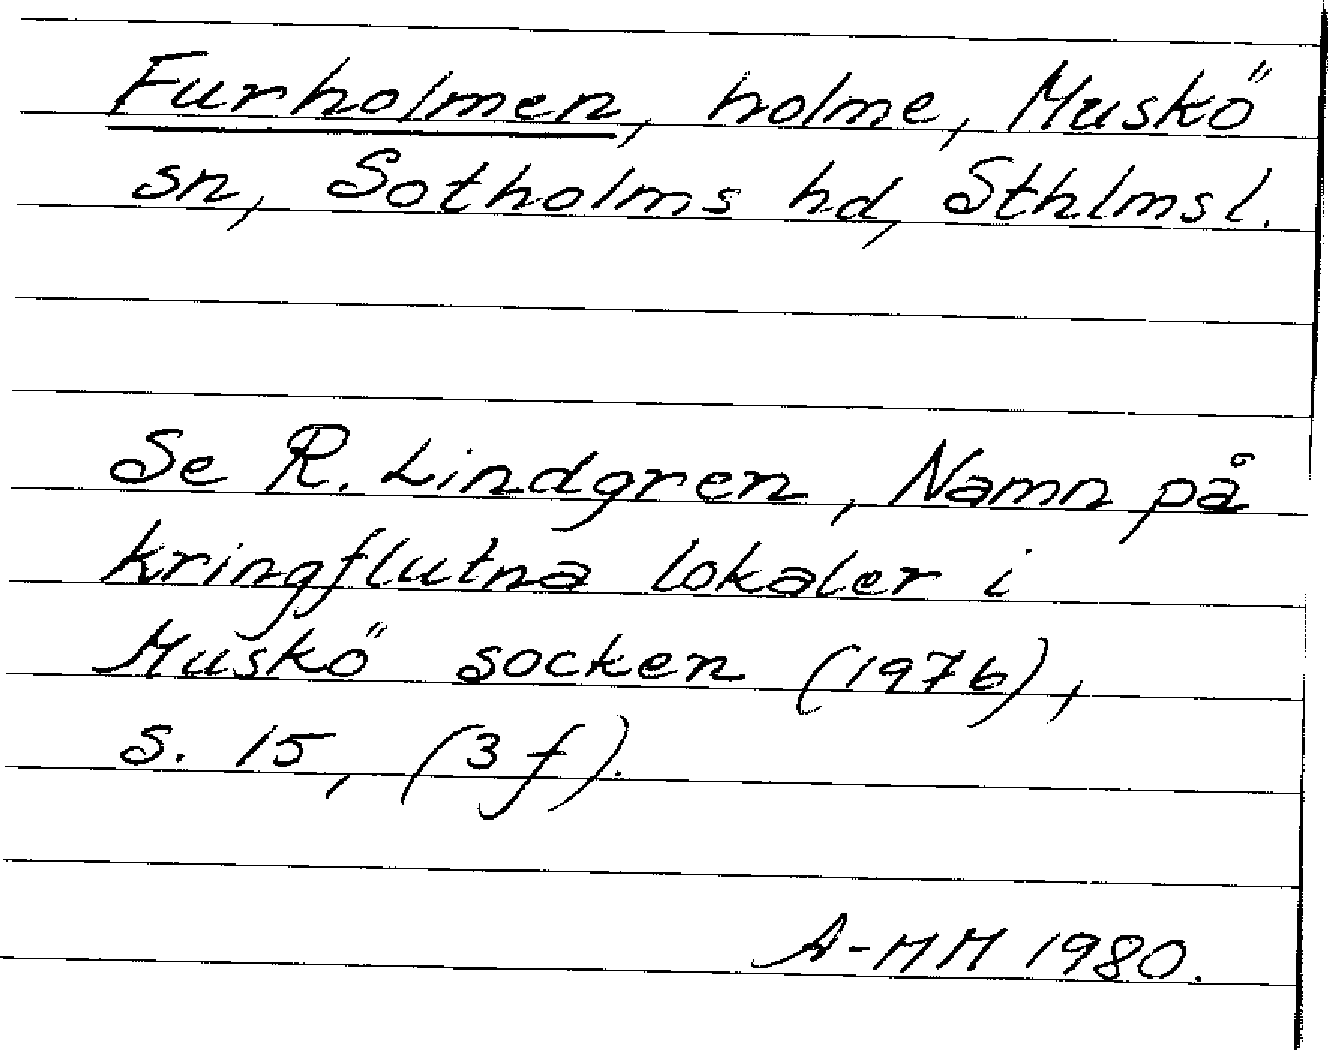 Furholmen, holme, Muskö
sn, Sotholms hd, Sthlmsl.
Se R. Lindgren, Namn på
kringflutna lokaler i
Muskö socken (1976),
s. 15, (3 f).
A-MM 1980.